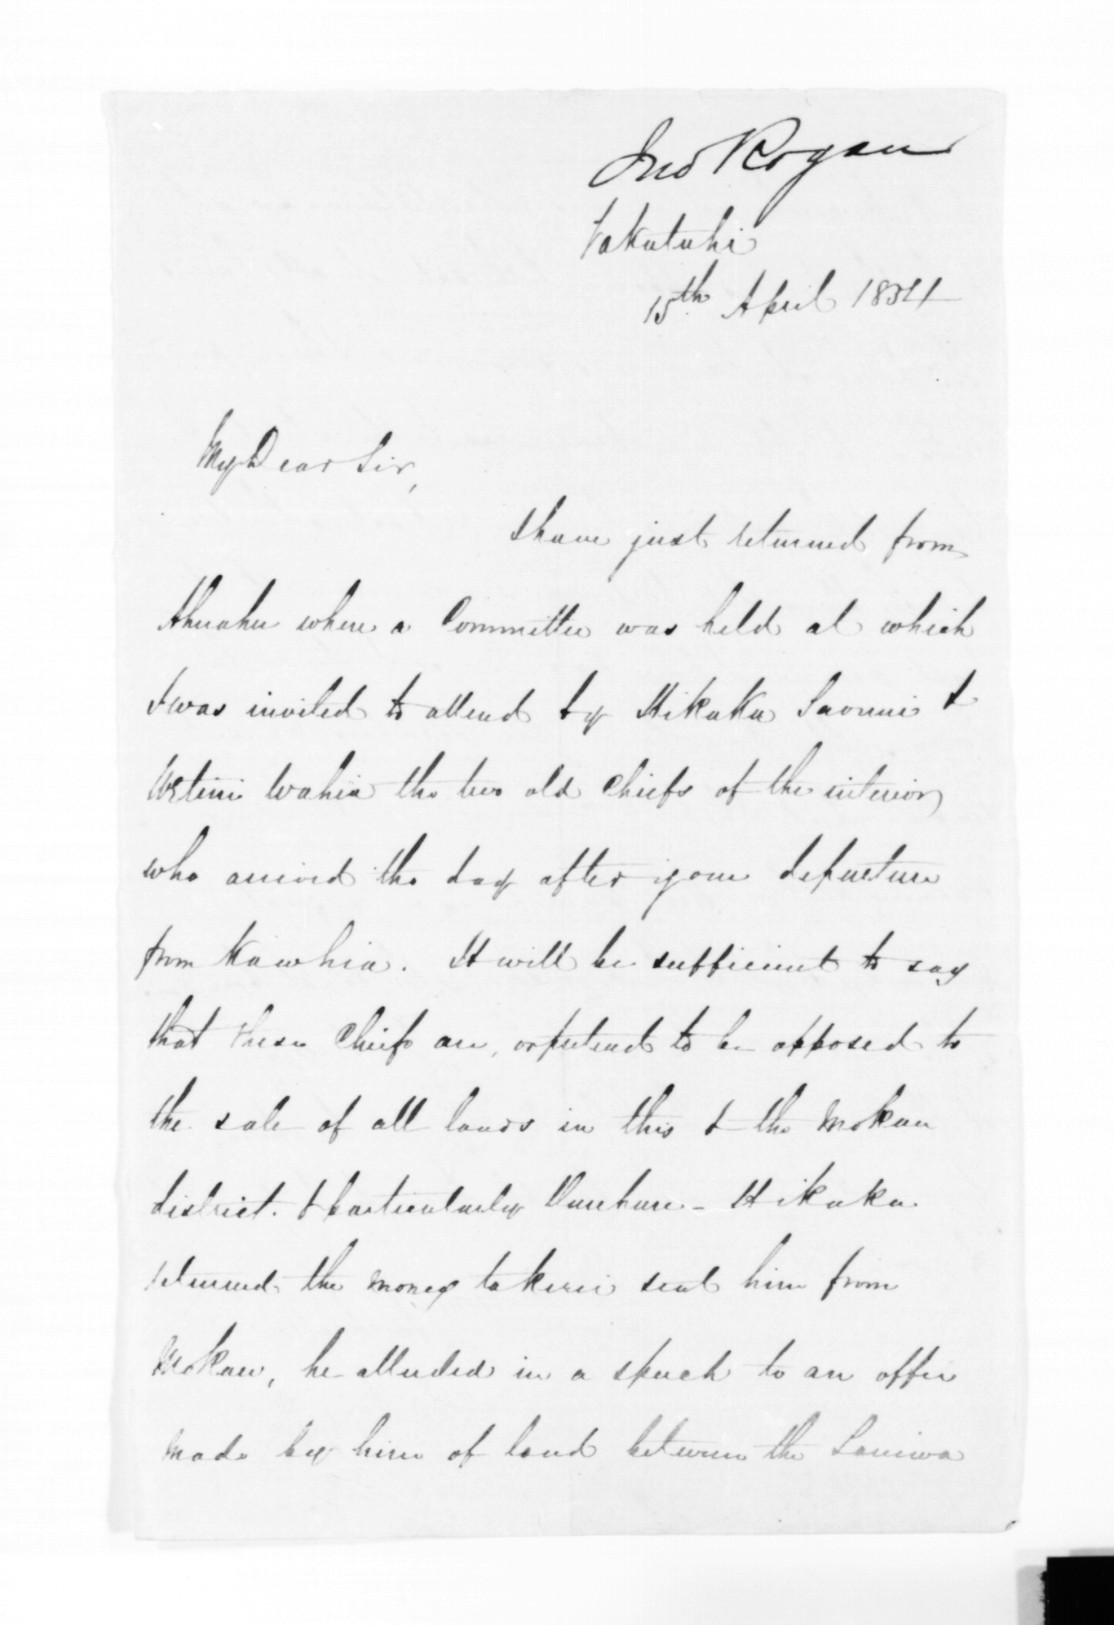 Jno Rogan
Takatahi
15th April 1854
My Dear Sir,
I have just returned from
Ahuahu where a Committee was held at which
I was invited to attend by Hikaka Taonui &
Wetini Wahia the two old Chiefs of the interior
who arrived the day after your departure
from Kawhia. It will be sufficient to say
that these Chiefs are, or pretend to be opposed to
the sale of all lands in this & the Mokau
district. & particularly - Hikaka
returned the money takerei sent him from
Mokau, he alluded in a speech to an offer
made by him of land between the Taniwa